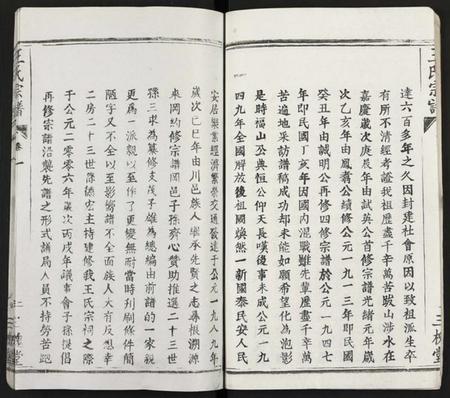 王氏宗譜
達六百多年之久因封建社會原因以致祖派生卒
有所不清經考證我祖歷盡千辛萬苦跋山涉水在
嘉慶歲次庚辰年由試英公首修宗譜光緒元年歲
次乙亥年由鳳耆公續修公元一九一三年即民國
癸丑年由誠明公再修四修宗譜於公元一九四七
年即民國丁亥年因國內混戰難先輩歷盡千辛萬
苦遍地采訪譜稿成功却未能如願希望化為泡影
是時福山公與恒公仰天長嘆後事未成公元一九
四九年全國解放後祖國煥然一新國泰民安人民
三槐堂
王氏宗譜
卷一
安居樂業經濟繁榮交通發達于公元一九八九年
歲次己巳年由川邑族人繼承先賢之志尋根溯源
來岡約修宗譜岡邑子孫齊心贊助推選二十三世
孫三求為纂修支茂子雄為總編由前譜的一家親
更為一派親以至作了更變無耐當時刊刷條件簡
陋字又不全以至影嚮譜不全面族人大有反想幸
二房二十三世孫德宏主持建修我王氏宗祠之際
于公元二零零六年歲次丙戌年議事會子孫提倡
再修宗譜沿襲先譜之形式譜局人員不持勞苦跑
三槐堂